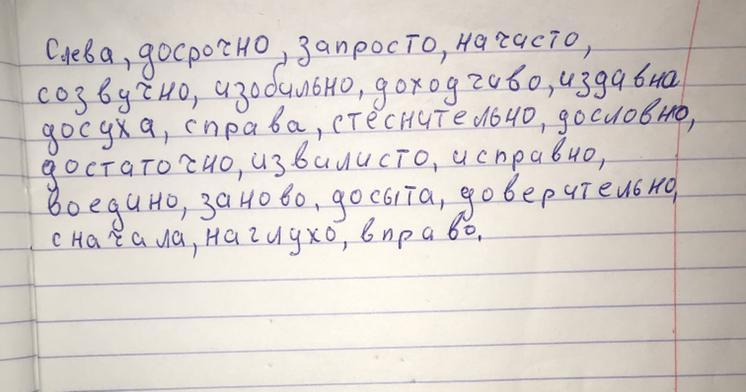 Слева, досрочно, запросто, начисто,
созвучно, изобильно, доходчиво, издавна
досуха, справа, стеснительно, дословно,
достаточно, извилисто, исправно,
воедино, заново, досыта, доверительно,
сначала, наглухо, вправо.